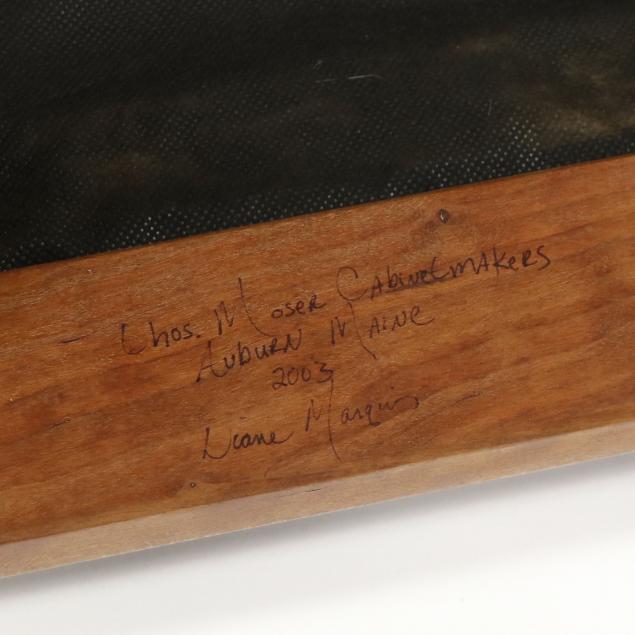 Thos. Moser Cabinetmakers
Auburn Maine
2003
Diane Marquis